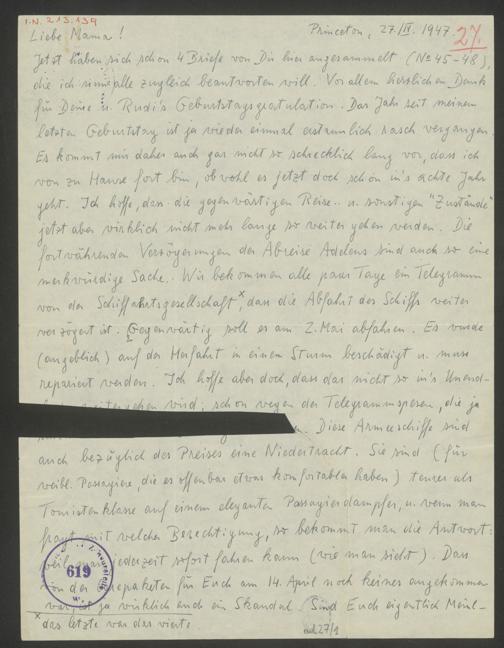 I.N. 213.139
Princeton, 27./IV. 1947
27.
Liebe Mama!
Jetzt haben sich schon 4 Briefe von Dir hier angesammelt (No 45-48),
die ich nun alle zugleich beantworten will. Vor allem herzlichen Dank
für Deine u. Rudi's Geburtstagsgratulation. Das Jahr seit meinem
letzten Geburtstag ist ja wieder einmal erstaunlich rasch vergangen.
Es kommt mir daher auch gar nicht so schrecklich lang vor, dass ich
von zu Hause fort bin, obwohl es jetzt doch schon in's achte Jahr
geht. Ich hoffe, dass die gegenwärtigen Reise- u. sonstigen "Zustände"
jetzt aber wirklich nicht mehr lange so weiter gehen werden. Die
fortwährenden Verzögerungen der Abreise Adelens sind auch so eine
merkwürdige Sache. Wir bekommen alle paar Tage ein Telegramm
von der Schiffahrtsgesellschaft x, dass die Abfahrt des Schiffs weiter
verzögert ist. Gegenwärtig soll es am 2. Mai abfahren. Es wurde
(angeblich) auf der Herfahrt in einem Sturm beschädigt u. muss
repariert werden. Ich hoffe aber doch, dass das nicht so in's Unend-
weitergehen wird; schon wegen der Telegrammspesen, die ja
Diese Armeeschiffe sind
auch bezüglich des Preises eine Niedertracht. Sie sind (für
weibl. Passagiere, die es offenbar etwas komfortabler haben) teurer als
Touristenklasse auf einem eleganten Passagierdampfer, u. wenn man
fragt mit welcher Berechtigung, so bekommt man die Antwort:
weil man jederzeit sofort fahren kann (wie man sieht). Dass
von den Carepaketen für Euch am 14. April noch keines angekommen
war, ist ja wirklich auch ein Skandal. Sind Euch eigentlich Mehl-
x das letzte war das vierte
619
ad 27/1